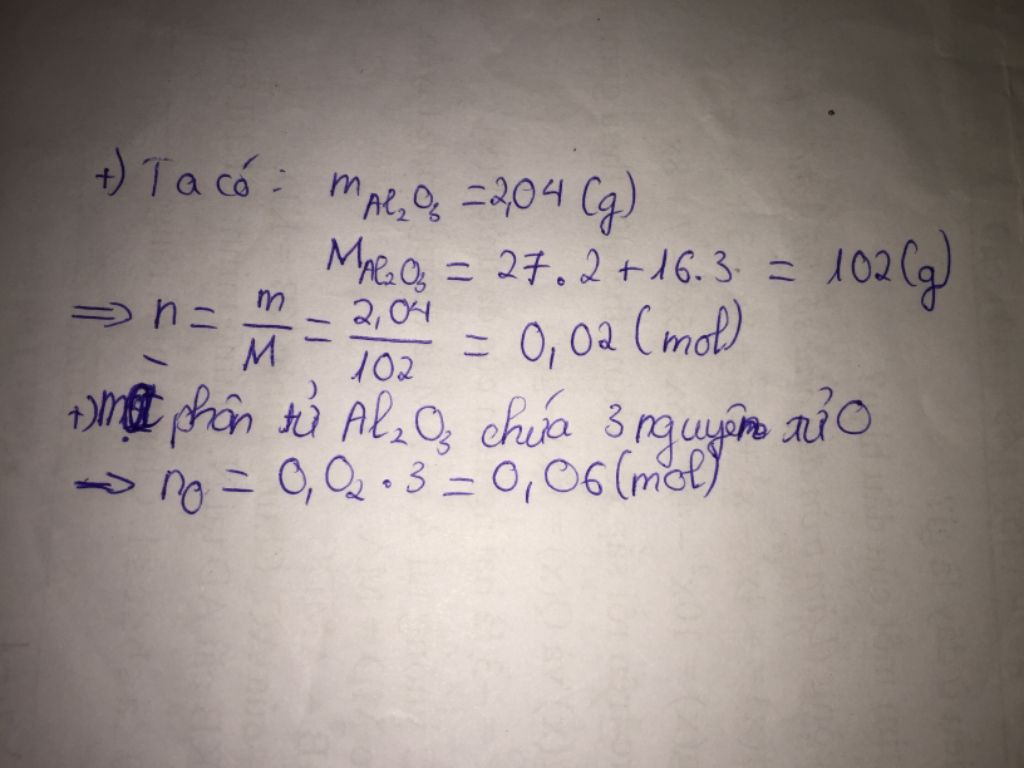 +) Ta có : m Al₂O₃ = 2,04 (g)
M Al₂O₃ = 27 . 2 + 16 . 3 = 102 (g)
=> n = m/M = 2,04/102 = 0,02 (mol)
+) phân tử Al₂O₃ chứa 3 nguyên tử O
=> nO = 0,02 . 3 = 0,06 (mol)